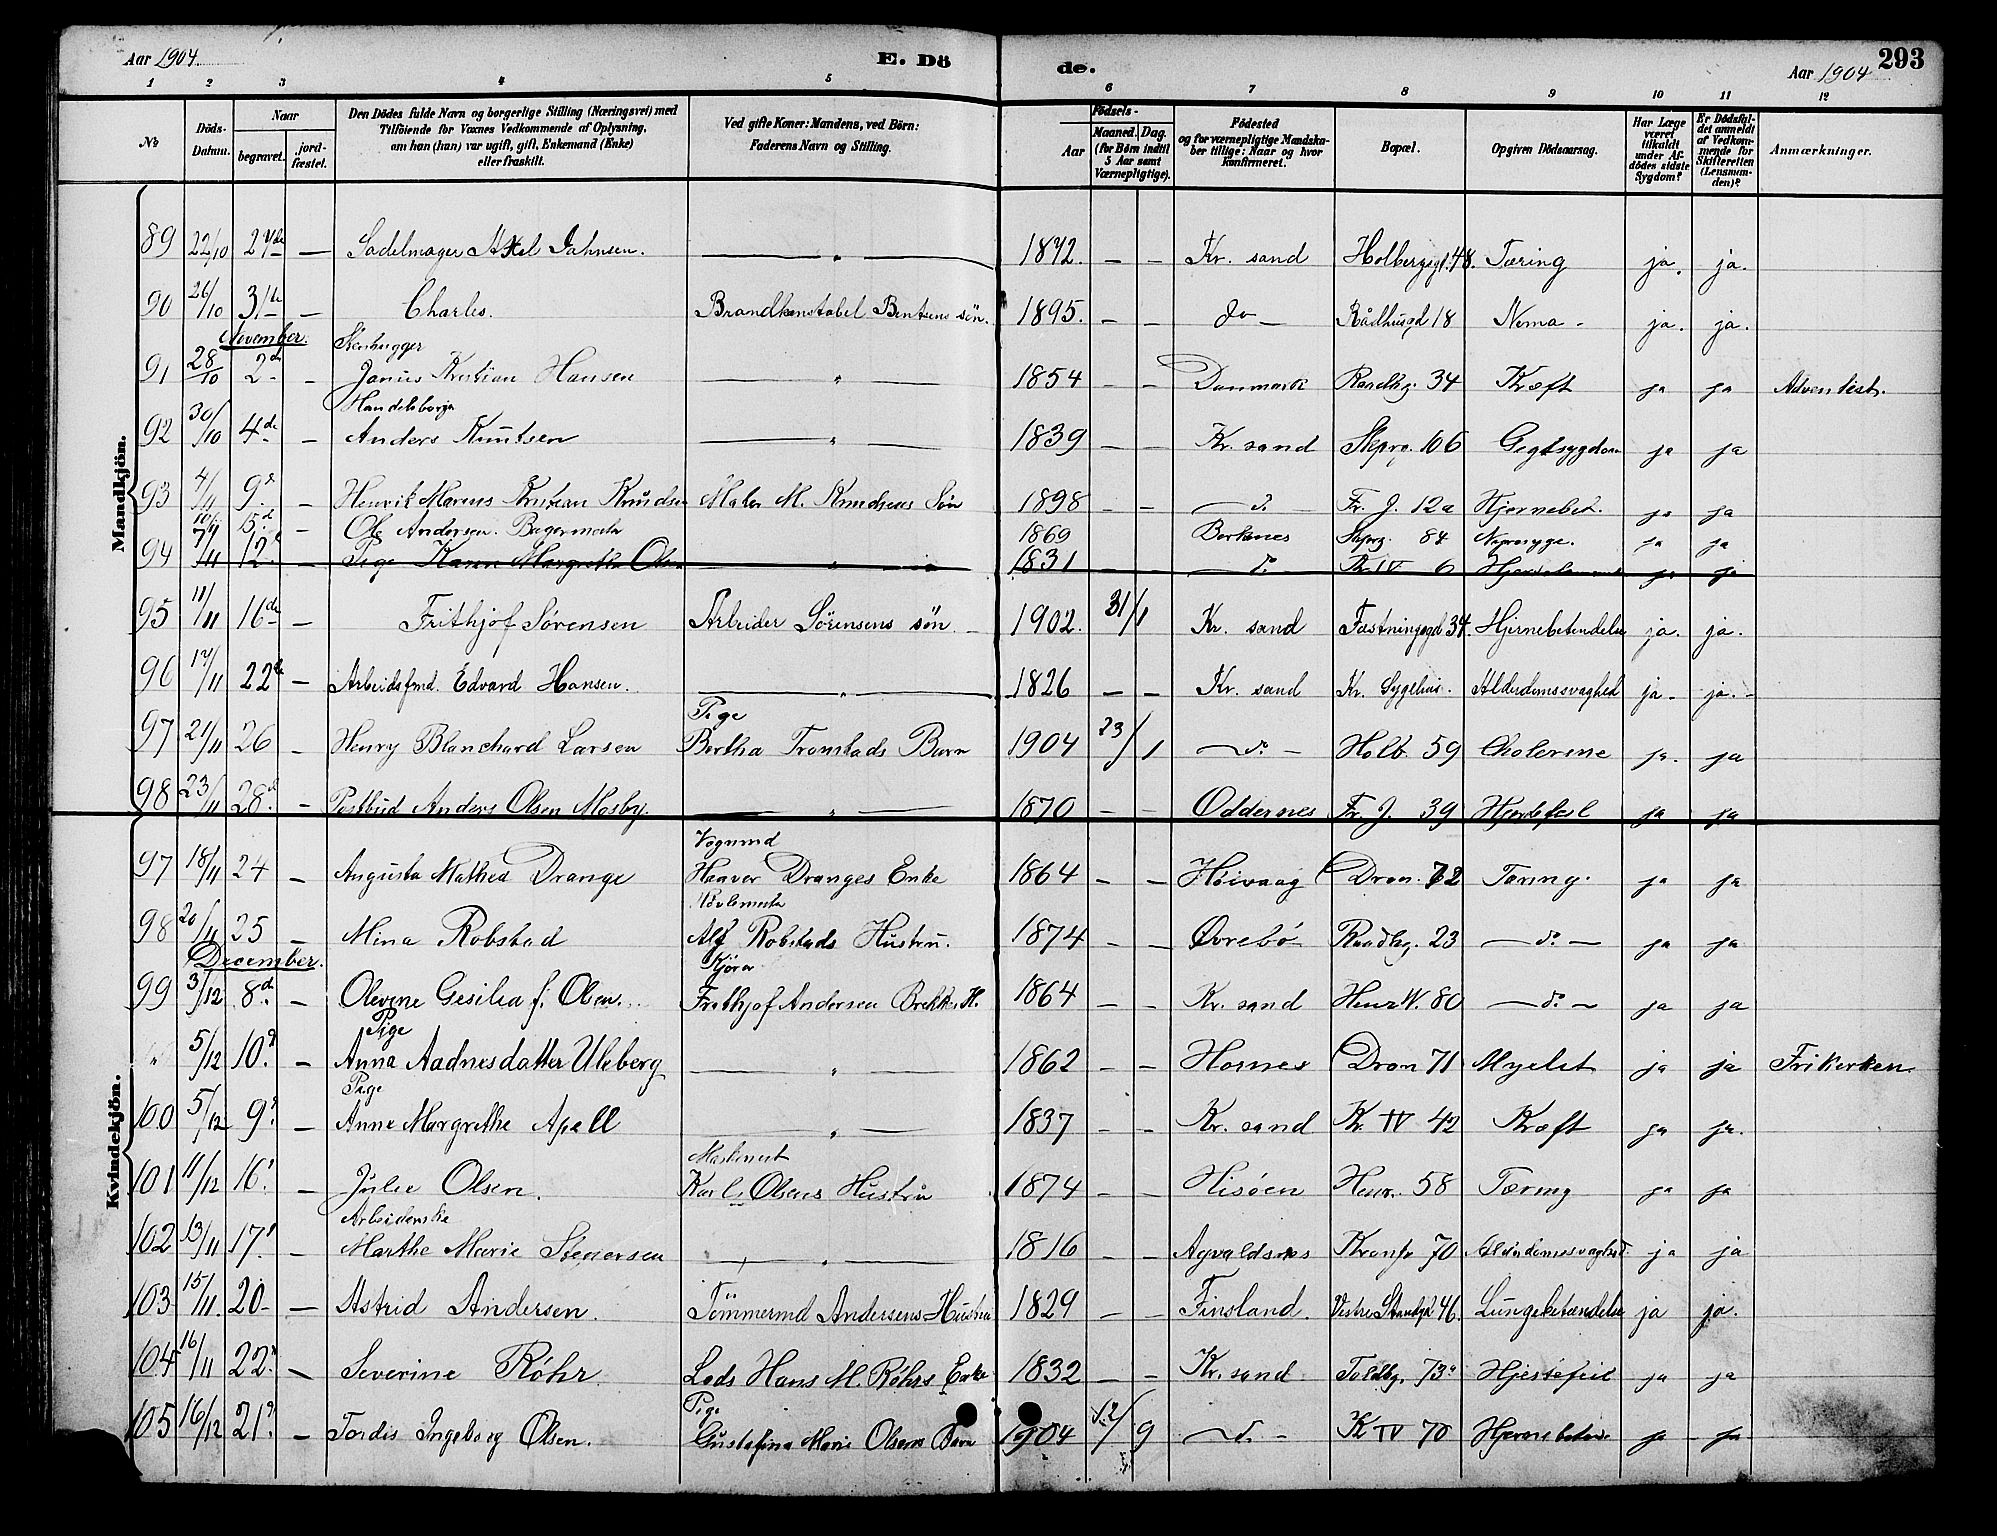 Aar 1904. E. Dö de. Aar 1904 293
1 2 3 4 5 6 7 8 9 10 11 12
No Döds-Datum. Naar begravet. jord-fæstet. Den Dödes fulde Navn og borgerlige Stilling (Næringsvei) med Tilföiende for Voxnes Vedkommende af Oplysning, om han (hun) var ugift, gift, Enkemand (Enke) eller fraskilt. Ved gifte Koner: Mandens, ved Börn: Faderens Navn og Stilling. Födsels- Aar Maaned. Dag. (for Börn indtil 5 Aar samt Værnepligtige). Födested og for værnepligtige Mandskaber tillige: Naar og hvor konfirmeret. Bopæl. Opgiven Dödsaarsag. Har Læge været tilkaldt under Afdödes sidste Sygdom? Er Dödsfaldet anmeldt af Vedkommende for Skifteretten (Lensmanden)? Anmærkninger.
Mandkjön.
89 22/10 27de — Sadelmager Axel Jahnsen. — " — 1872. — — Kr. sand Holbergsgt. 48. Tæring ja. ja.
90 26/10 31te — Charles. Brandkonstabel Bentsens sön. 1895. — — do — Rådhusgd 18 Noma - ja. ja.
November.
Stenhugger
91 28/10 2den — Janus Kristian Hansen — " — 1854 — — Danmark Raadhg. 34 Kræft ja ja Adventist.
Handelsborger
92 30/10 4de — Anders Knutsen — " — 1839 — — Kr. sand Skprg. 106 Gigtsygdom ja ja
93 4/11 9de — Henrik Marius Kristian Knudsen Maler M. Knudsens Søn 1898 — — do. Fr. J. 12a Hjernebet. ja ja
10/11 15.d — Ole Andersen. Bagermester 1869 Birkenes Skprg. 84 ja ja
94 7/11 12 — Pige Karen Margrethe Olsen — " — 1831 — do. Kr IV 6 ja ja
95 11/11 16de — Frithjof Sørensen Arbeider Sörensens sön. — 1902. 31/1 Kr. sand Fæstningsgd 34. Hjernebetændelse ja. ja.
96 17/11 22de — Arbeidsfmd. Edvard Hansen. — " — 1826 — — Kr. sand Kr. Sygehus. Alderdomssvaghed ja. ja.
Pige
97 21/11 26 — Henry Blanchard Larsen Bertha Tromstads Barn 1904 23/1 — do. — Holb. 59 Cholerine ja. ja
98 23/11 28.d — Postbud Anders Olsen Mosby. — " — 1870 — — Oddernes Fr. J. 39 Hjertefeil ja ja
Kvindekjön.
Vognmd
97 18/11 24 — Augusta Mathea Drange Haaver Dranges Enke 1864 — — Höivaag Dron. 72 Tæring. ja ja
98 20/11 25 — Mina Robstad Alf Robstads Hustru. 1874 — — Øvrebö Raadhg. 23 — do. — ja ja
December.
Kjörer
99 3/12 8.d — Olevine Gesilia f. Olsen. Frithjof Andersen Brekkes H. 1864 — — Kr. sand Henr W. 80 — do. — ja ja
Pige
" 5/12 10.d — Anna Aadnesdatter Uleberg — " — 1862 — — Hornes Dron 71 Myelit ja ja Frikirken.
Pige
100 5/12 9.d — Anne Margrethe Apell — " — 1837 — — Kr. sand Kr. IV 42 Kræft ja ja.
Maskinist
101 11/12 16. — Julie Olsen. Karl Olsens Hustru 1874 — — Hisöen Henr. 58 Tæring ja ja
Arbeiderske
102 13/11 17. — Marthe Marie Stenersen — " — 1816 — — Kronpr 70 Alderdomssvaghed ja ja
103 15/11. 20 — Astrid Andersen. Tömmermd Andersens Hustru 1829 — — Finsland. Vestre Strandgd 46. Lungebetændelse ja ja.
104 16/11 22. — Severine Röhr. Lods Hans M. Röhrs Enke 1832 — — Kr. sand Toldbg. 73a Hjertefeil ja ja
Pige
105 16/12 21. — Tordis Ingeborg Olsen. Gustafina Marie Olsens Barn 1904 12/9 — do. — Kr IV 70 ja ja